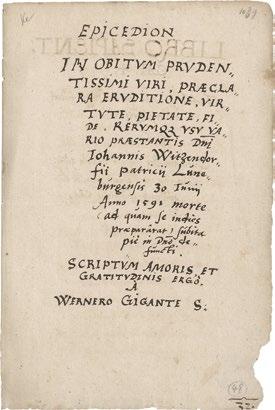 EPICEDION
IN OBITUM PRUDEN=
TISSIMI VIRI, PRÆCLA=
RA ERUDITIONE, VIR=
TUTE, PIETATE, FI=
DE, RERUMQ3 USU VA=
RIO PRÆSTANTIS Dni
Iohannis Witzendor=
fii Patricii Lune=
burgensis 30 Iunij
Anno 1591 morte
ad quam se indies
præpararat, subita
pie in Dno de=
functi.
SCRIPTUM AMORIS ET
GRATITUDINIS ERGO,
A
WERNERO GIGANTE S.
(48)